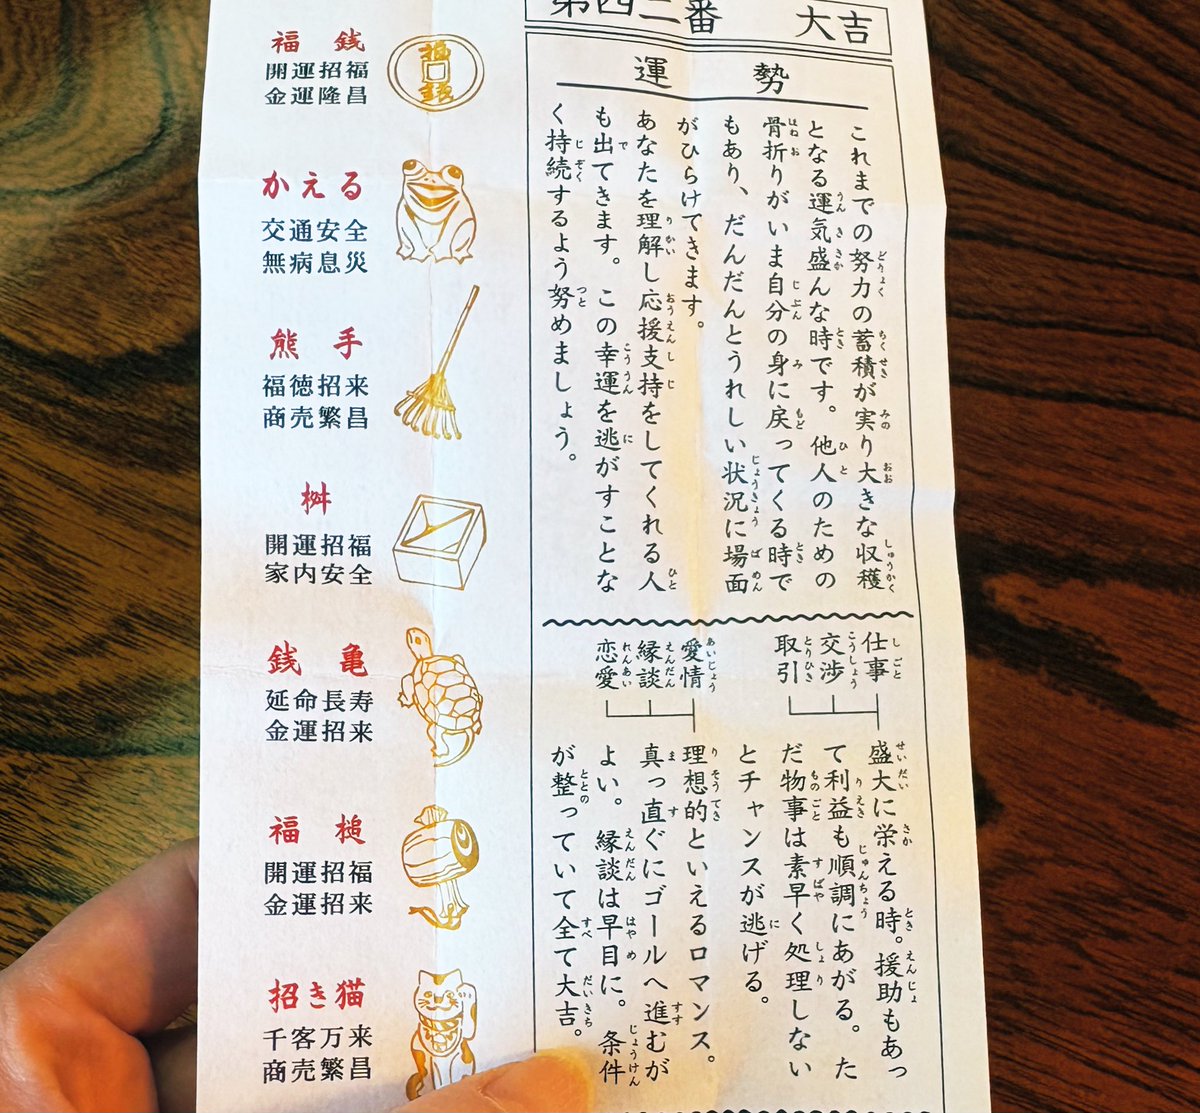 第四二番 大吉
運勢
これまでの努力の蓄積が実り大きな収穫
となる運気盛んな時です。他人のための
骨折りがいま自分の身に戻ってくる時で
もあり、だんだんとうれしい状況に場面
がひらけてきます。
あなたを理解し応援支持をしてくれる人
も出てきます。この幸運を逃がすことな
く持続するよう努めましょう。
仕事
交渉
取引
盛大に栄える時。援助もあっ
て利益も順調にあがる。た
だ物事は素早く処理しない
とチャンスが逃げる。
愛情
縁談
恋愛
理想的といえるロマンス。
真っ直ぐにゴールへ進むが
よい。縁談は早目に。条件
が整っていて全て大吉。
福銭
開運招福
金運隆昌
福銭
かえる
交通安全
無病息災
熊手
福徳招来
商売繁昌
桝
開運招福
家内安全
銭亀
延命長寿
金運招来
福槌
開運招福
金運招来
招き猫
千客万来
商売繁昌